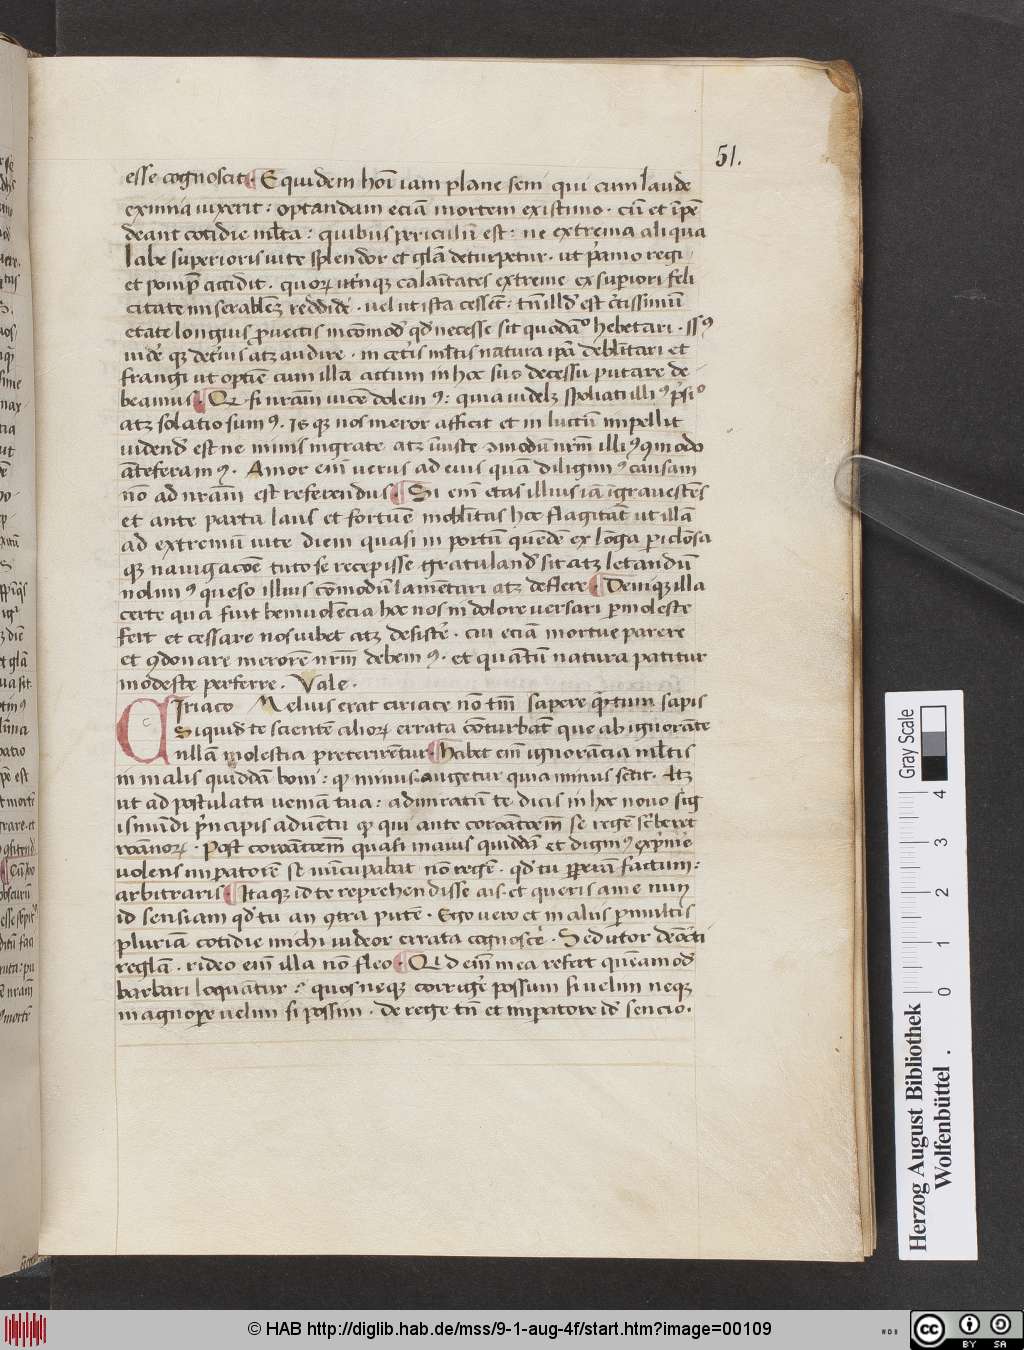 51.
esse cognoscit. Equidem hoı̄ iam plane seni qui cum laude
eximia uixerit : optandam eciā mortem existimo . cū et īpē
deant cotidie ml̄ta : quibus periculū est : ne extrema aliqua
labe superioris uite splendor et glām deturpetur . ut p̄amo regi
et pomp̄ accidit . quoꝝ utrūqꝫ calaı̄tates extreme ex supiori feli
citate miserablēꝫ reddidē . uel ut ista cessēt : tn̄ illd̄ est c̄tissimū
etate longius p̄uectis incōmod̄ qd̄ necesse sit quodāo hebetari .
uidē qꝫ det̄ius atqꝫ audire . in cet̄is ml̄tis natura ipā deblītari et
frangi ut optīe cum illa actum in hoc suo decessu putare de-
beamus. Q si nrām uicē dolemꝰ : quia uidelꝫ spoliati illiꝰ p̄siō
atqꝫ solatio sumꝰ . Is qꝫ nos meror afficit et in luctū impellit
uidend̄ est ne nimis ingrate atqꝫ iniuste ꝯmodū nrm̄ illiꝰ ꝯmodo
āteferamꝰ . Amor eni᷑ uerus ad eius quā diligimꝰ causam
nō ad nrām est referendus . Si eni᷑ etas illius iā īgrauescēs
et ante parta laus et fortune mobilītas hoc flagitāt ut illā
ad extremū uite diem quasi in portū quēdē ex lōga piclōsa
qꝫ nauigacōe tuto se recepisse gratuland̄ sit atqꝫ letandū
nolimꝰ queso illius cōmodū lamētari atqꝫ deflere . Deniqꝫ illa
certe qua fuit beniuolēcia hoc nos in dolore uersari pmoleste
fert et cessare nos iubet atqꝫ desistē . cui eciā mortue parere
et ꝯdonare merorē nrm̄ debemꝰ . et quātū natura patitur
modeste perferre . Vale .
Ciriaco Melius erat ciriace nō tm̄ sapere q̄tum sapis
Siquid̄ te scientē alioꝝ errata cōturbāt que ab ignorāte
nullā molestia preterirētur . Habet eni᷑ ignorācia ml̄tis
in malis quiddā boni : qp minus augetur quia minus sētit . Atqꝫ
ut ad postulata ueniā tua : admiratū te dicis in hoc nouo sig
ismūdi p̄ncipis aduētu qp qui ante coroātōem se regē sc̄beret
roānoꝝ . Post coroātōem quasi maius quiddā et digniꝰ exp̄mē
uolens impatorē se nūcupabat nō regē . qd̄ tu pperā factum :
arbitraris . Itaqꝫ id te reprehendisse ais . et queris a me nunq
id sensiam qd̄ tu an ꝯtra putē . Ego uero et in aliis pmultis
pluriā cotidie michi uideor errata cognoscē . Sed utor deōc̄ti
reglā . rideo eni᷑ illa nō fleo . Qid eni᷑ mea refert quēamod̄
barbari loquātur ? quos neqꝫ corrigē possum si uelim neqꝫ
magnope uelim si possim . de rege tn̄ et impatore id̄ sencio .
Gray Scale
0 1 2 3 4
Herzog August Bibliothek
Wolfenbüttel .
© HAB http://diglib.hab.de/mss/9-1-aug-4f/start.htm?image=00109
WDB
cc BY SA